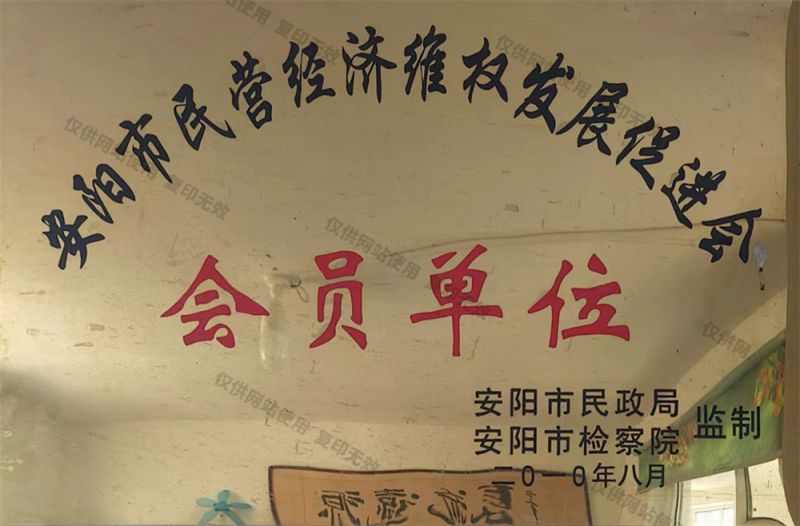 安阳市民营经济维权发展促进会
会员单位
安阳市民政局
安阳市检察院
监制
二0一0年八月
仅供网站使用 复印无效
仅供网站使用 复印无效
仅供网站使用 复印无效
仅供网站使用 复印无效
仅供网站使用 复印无效
仅供网
仅供网站使用